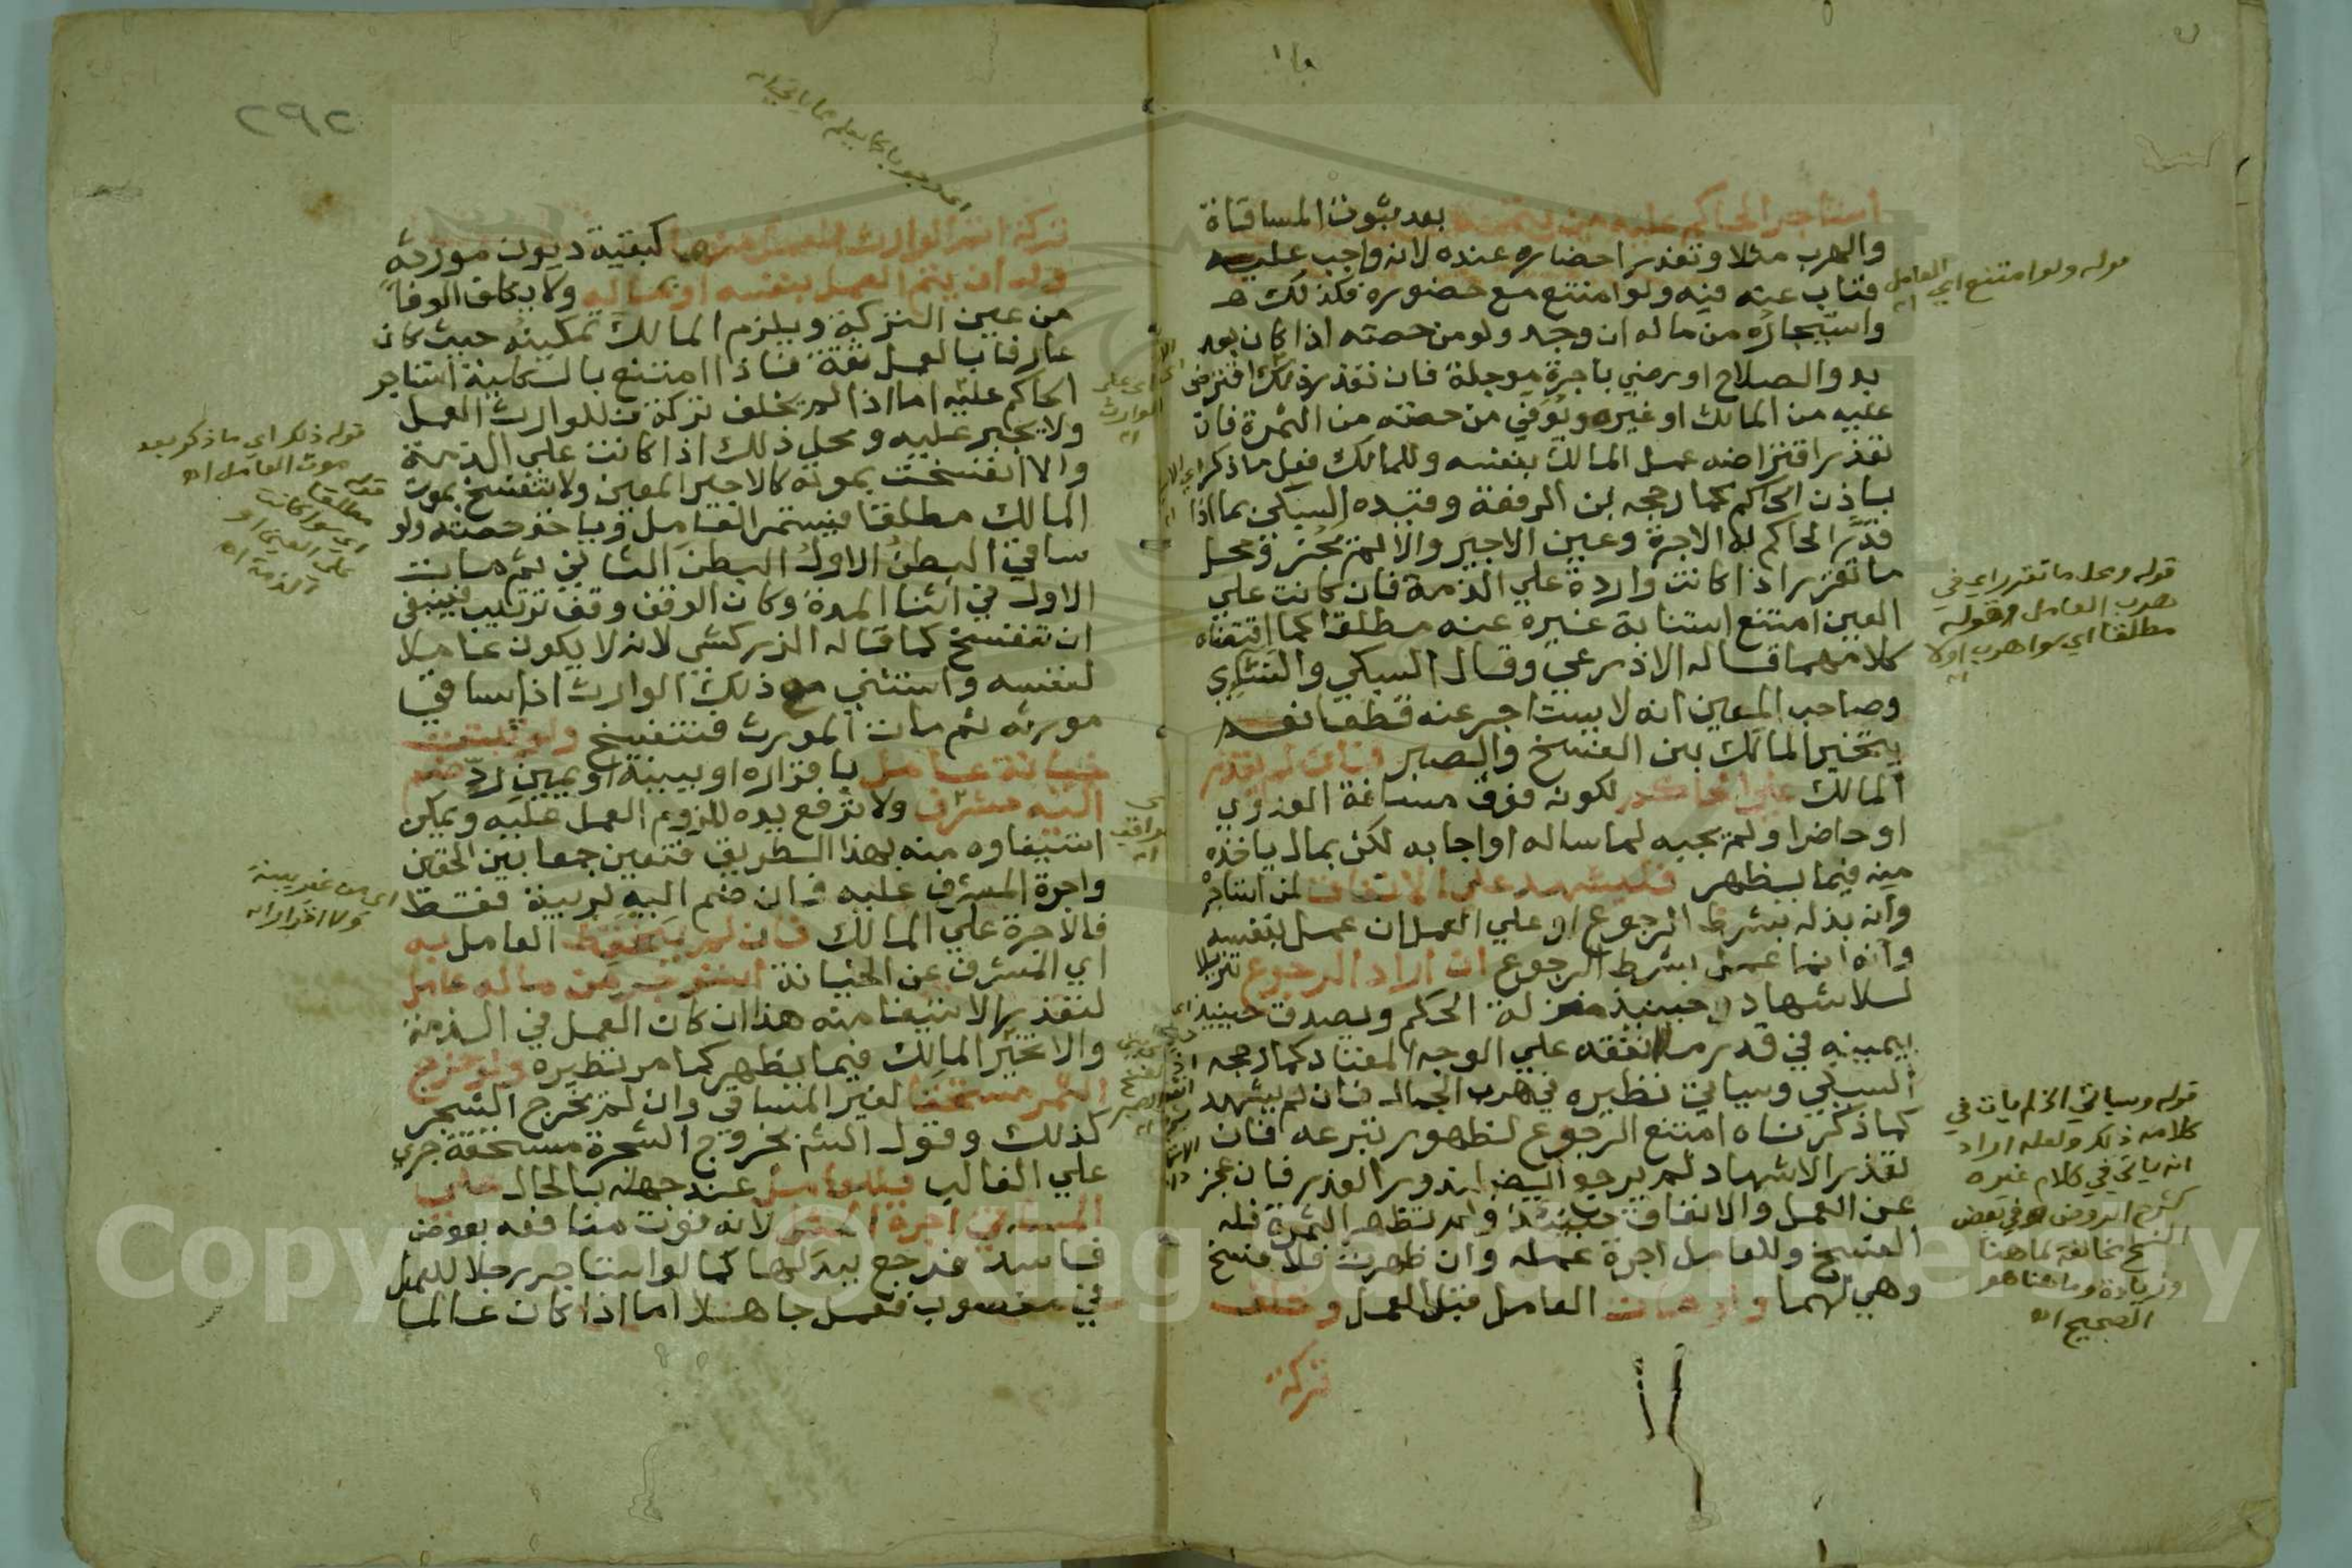 استاجر الحاكم عليه من يتممه بعد ثبوت المساقاة
والهرب مثلا وتعذر احضاره عنده لانه واجب عليه
فناب عنه فيه ولو امتنع مع حضوره فكذلك
واستيجاره من ماله ان وجد ولو من حصته اذا كان بعد
بدو الصلاح او رضي باجرة موجلة فان تعذر ذلك اقترض
عليه من المالك او غيره وتوفي من حصته من الثمرة فان
تعذر اقتراضه عمل المالك بنفسه وللمالك فعل ما ذكر
باذن الحاكم كما رجحه ابن الرفعة وقيده السبكي بما اذا
قدر الحاكم له الاجرة وعين الاجير والا لم يجز ومحل
ما تقرر اذا كانت واردة علي الذمة فان كانت علي
العين امتنع استنابة غيره عنه مطلقا كما اقتضاه
كلامهما قاله الاذرعي وقال السبكي والنشائي
وصاحب المعين انه لا يستاجر عنه قطعا نعم
يتخير المالك بين الفسخ والصبر فان لم يقدر
المالك علي الحاكم لكونه فوق مسافة العدوي
او حاضرا ولم يجبه لما ساله او اجابه لكن بمال ياخذه
منه فيما يظهر فليشهد علي الانفاق لمن استاجره
وانه بذله بشرط الرجوع او علي العمل ان عمل بنفسه
وانه انما عمل بشرط الرجوع ان اراد الرجوع تنزيلا
للاشهاد حينيذ منزلة الحكم ويصدق حينيذ
بيمينه في قدر ما انفقه علي الوجه المعتاد كما رجحه
السبكي وسياتي نظيره في هرب الجمال فان لم يشهد
كما ذكرناه امتنع الرجوع لظهور تبرعه فان
تعذر الاشهاد لم يرجع ايضا لندور العذر فان عجز
عن العمل والانفاق حينيذ ولم تظهر الثمرة فله
الفسخ وللعامل اجرة عمله وان ظهرت فلا فسخ
وهي لهما ولو مات العامل قبل العمل وخلف
تركة
قوله ولو امتنع اي العامل اه
قوله ومحل ما تقرر اي في
هرب العامل وقوله
مطلقا اي سوا هرب اولا
اه
قوله وسياتي الخ لم يات في
كلامه ذلك ولعله اراد
انه ياتي في كلام غيره
كشرح الروض وفي بعض
النسخ مخالفة لما هنا
وزيادة وما هنا هو
الصحيح اه
٢٩٢
تركة اتم الوارث العمل منها كبقية ديون مورثه
وله ان يتم العمل بنفسه او بماله ولا يكلف الوفا
من عين التركة ويلزم المالك تمكينه حيث كان
عارفا بالعمل ثقة فاذا امتنع بالكلية استاجر
الحاكم عليه اما اذا لم يخلف تركة فللوارث العمل
ولا يجبر عليه ومحل ذلك اذا كانت علي الذمة
والا انفسخت بموته كالاجير المعين ولا تنفسخ بموت
المالك مطلقا فيستمر العامل وياخذ حصته ولو
ساقي البطن الاول البطن الثاني ثم مات
الاول في اثنا المدة وكان الوقف وقف ترتيب فينبغي
ان تنفسخ كما قاله الزركشي لانه لا يكون عاملا
لنفسه واستثني مع ذلك الوارث اذا ساقي
مورثه ثم مات المورث فتنفسخ ولو ثبتت
خيانة عامل باقراره او ببينة او يمين رد ضم
اليه مشرف ولا ترفع يده للزوم العمل عليه ويمكن
استيفاوه منه بهذا الطريق فتعين جمعا بين الحقين
واجرة المشرف عليه فان ضم اليه لريبة فقط
فالاجرة علي المالك فان لم يتحفظ العامل به
اي المشرف عن الخيانة استوجر من ماله عامل
لتعذر الاستيفا منه هذا ان كان العمل في الذمة
والا تخير المالك فيما يظهر كما مر نظيره ولو خرج
الثمر مستحقا لغير المساقي وان لم يخرج الشجر
كذلك وقول الشم بخروج الشجرة مستحقة جري
علي الغالب فللعامل عند جهله بالحال علي
المساقي اجرة المثل لانه فوت منافعه بعوض
فاسد فرجع ببدلها كما لو استاجر رجلا للعمل
في مغصوب فعمل جاهلا اما اذا كان عالما
اي علي
الوارث
اه
قوله ذلك اي ما ذكر بعد
موت العامل اه
قوله
مطلقا
اي سوا كانت
علي العين او
الذمة اه
اي من غير بينة
ولا اقرار اه
Copyright © King Saud University